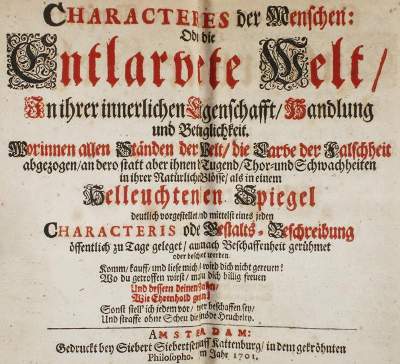 CHARACTERES der Menschen:
Od die
Entlarvete Welt/
In ihrer innerlichen Egenschafft/ Handlung
und Betüglichkeit.
Worinnen allen Ständen der Welt/ die Larve der Falschheit
abgezogen/ anders statt aber ihnen Tugend/ Thor- und Schwachheiten
in ihrer Natürlich Blösse/ als in einem
Helleuchtenen Spiegel
deutlich vorgestellet nd mittelst eines jeden
CHARACTERIS ode Gestalts-Beschreibung
öffentlich zu Tage geleget/ au nach Beschaffenheit gerühmet
oder
Komm/ kauff/ und liese mich/ wird dich nicht gereuen!
Wo du getroffen wirst/ mu dich billig freuen
Und bessern deinen
Wie Ehrenhold
Sonst stell' ich jedem vor/ wer beschaffen sey/
Und straffe ohne Scheu die nöde Heucheley.
AMSTERDAM:
Gedruckt bey Siebert Siebertsens Kattenburg/ in dem gekröhnten
Philosopho. m Jahr 1701.